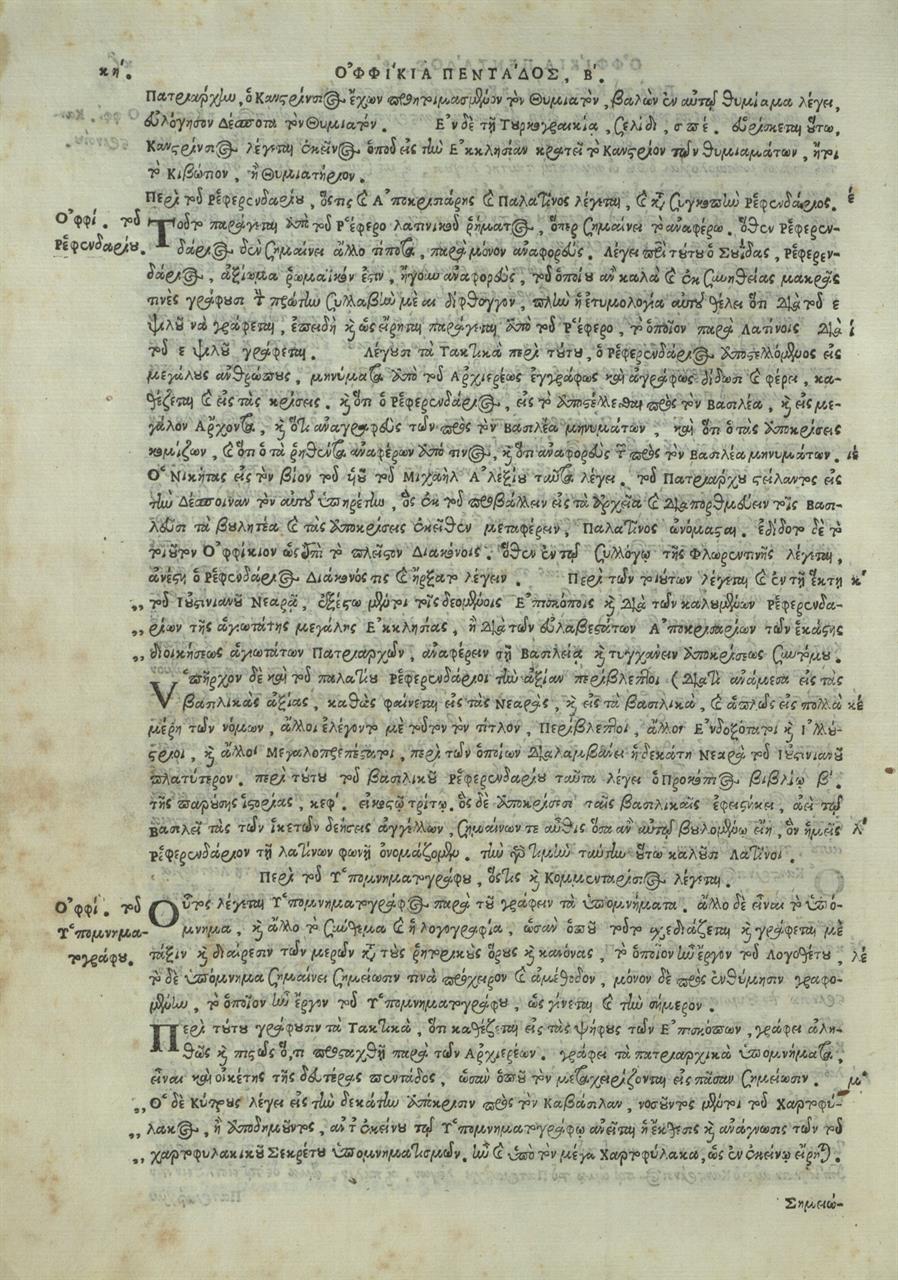 κή.
ὈΦΦΙΚΙΑ ΠΕΝΤΑΔΟΣ, Β΄.
Πατριάρχην, ὁ Κανστρίνσιος ἔχων προητοιμασμένον τὸν Θυμιατὸν, βαλὼν ἐν αὐτῷ θυμίαμα λέγει,
εὐλόγησον Δέσποτα τὸν Θυμιατόν. Ἐν δὲ τῇ Τουρκογραικίᾳ, σελίδι, σπέ. εὑρίσκεται οὕτω.
Κανστρίνσιος λέγεται ἐκεῖνος ὁποῦ εἰς τὴν Ἐκκλησίαν κρατεῖ τὸ Κανστρίον τῶν θυμιαμάτων, ἤτοι
τὸ Κιβώπον, ἢ Θυμιατήριον.
Περὶ τοῦ Ῥεφερενδαρίου, ὅςτις καὶ Ἀποκρισιάρης καὶ Παλατῖνος λέγεται, καὶ κατὰ συγκοπὴν Ῥεφενδάριος. έ
Ὀφφί. τοῦ
Ῥεφενδαρίου.
Τοῦτο παράγεται ἀπὸ τοῦ Ῥέφερο λατινικοῦ ῥήματος, ὅπερ σημαίνει τὸ ἀναφέρω. ὅθεν Ῥεφερεν-
δάριος δὲν σημαίνει ἄλλο τίποτα, παρὰ μόνον ἀναφορεύς. Λέγει περὶ τούτου ὁ Σουΐδας, Ῥεφερεν-
δάριος, ἀξίωμα ῥωμαϊκόν ἐστιν, ἤγουν ἀναφορεύς, τοῦ ὁποίου ἂν καλὰ καὶ ἐκ συνηθείας μακρᾶς
τινὲς γράφουσι τὴν πρώτην συλλαβὴν μὲ αι δίφθογγον, πλὴν ἡ ἐτυμολογία αὐτοῦ θέλει ὅτι διὰ τοῦ ε
ψιλοῦ νὰ γράφεται, ἐπειδὴ καὶ ὡς εἴρηται παράγεται ἀπὸ τοῦ Ῥέφερο, τὸ ὁποῖον παρὰ Λατίνοις διὰ ί
τοῦ ε ψιλοῦ γράφεται. Λέγουσι τὰ Τακτικὰ περὶ τούτου, ὁ Ῥεφερενδάριος ἀποστελλόμενος εἰς
μεγάλους ἀνθρώπους, μηνύματα ἀπὸ τοῦ Ἀρχιερέως ἐγγράφως καὶ ἀγράφως δίδωσι καὶ φέρει, κα-
θέζεται καὶ εἰς τὰς κρίσεις. καὶ ὅτι ὁ Ῥεφερενδάριος, εἰς τὸ ἀποστέλλεσθαι πρὸς τὸν Βασιλέα, καὶ εἰς με-
γάλον Ἄρχοντα, καὶ ὅτι ἀναγραφεὺς τῶν πρὸς τὸν Βασιλέα μηνυμάτων, καὶ ὅτι ὁ τὰς ἀποκρίσεις
κομίζων, καὶ ὅτι ὁ τὰ ῥηθέντα ἀναφέρων ἀπό τινος, καὶ ὅτι ἀναφορεὺς τῶν πρὸς τὸν Βασιλέα μηνυμάτων. ιέ
Ὁ Νικήτας εἰς τὸν βίον τοῦ υἱοῦ τοῦ Μιχαὴλ Ἀλεξίου ταῦτα λέγει. τοῦ Πατριάρχου στείλαντος εἰς
τὴν Δέσποιναν τὸν αὐτοῦ ὑπηρέτην, ὃς ἐκ τοῦ προβάλλειν εἰς τὰ ἀρχεῖα καὶ διαπορθμεύειν τοῖς Βασι-
λεῦσι τὰ βουλητέα καὶ τὰς ἀποκρίσεις ἐκεῖθεν μεταφέρειν, Παλατῖνος ὠνόμασται. ἐδίδοτο δὲ τὸ
τοιοῦτον Ὀφφίκιον ὡς ἐπὶ τὸ πλεῖστον Διακόνοις. ὅθεν ἐν τῷ Συλλόγῳ τῆς Φλωρεντινῆς λέγεται,
ἀνέστη ὁ Ῥεφενδάριος Διάκονός τις καὶ ἤρξατο λέγειν. Περὶ τῶν τοιούτων λέγεται καὶ ἐν τῇ ἕκτῃ κ΄
,, τοῦ Ἰουστινιανοῦ Νεαρᾷ, ἐξέστω μέντοι τοῖς δεομένοις Ἐπισκόποις καὶ διὰ τῶν καλουμένων Ῥεφερενδα-
,, ρίων τῆς ἁγιωτάτης μεγάλης Ἐκκλησίας, ἢ διὰ τῶν εὐλαβεστάτων Ἀποκρισιαρίων τῶν ἑκάστης
,, διοικήσεως ἁγιωτάτων Πατριαρχῶν, ἀναφέρειν τῇ Βασιλείᾳ καὶ τυγχάνειν ἀποκρίσεως συντόμου.
Ὑπῆρχον δὲ καὶ τοῦ παλατίου Ῥεφερενδάριοι τὴν ἀξίαν περίβλεπτοι (διατὶ ἀνάμεσα εἰς τὰς
βασιλικὰς ἀξίας, καθὼς φαίνεται εἰς τὰς Νεαρὰς, καὶ εἰς τὰ βασιλικὰ, καὶ ἁπλῶς εἰς πολλὰ κέ
μέρη τῶν νόμων, ἄλλοι ἐλέγοντο μὲ τοῦτον τὸν τίτλον, Περίβλεπτοι, ἄλλοι Ἐνδοξότατοι καὶ Ἰλλού-
στριοι, καὶ ἄλλοι Μεγαλοπρεπέστατοι, περὶ τῶν ὁποίων διαλαμβάνει ἡ δεκάτη Νεαρὰ τοῦ Ἰουστινιανοῦ
πλατύτερον. περὶ τούτου τοῦ βασιλικοῦ Ῥεφερενδαρίου ταῦτα λέγει ὁ Προκόπιος βιβλίῳ β΄.
τῆς παρούσης ἱστορίας, κεφ. εἰκοστῷ τρίτῳ. ὃς δὲ ἀποκρίσεσι ταῖς βασιλικαῖς ἐφειστήκει, ἀεὶ τῷ
Βασιλεῖ τὰς τῶν ἱκετῶν δεήσεις ἀγγέλλων, σημαίνων τε αὖθις ὅσα ἂν αὐτῷ βουλομένῳ εἴη, ὃν ἡμεῖς λ΄
Ῥεφερενδάριον τῇ λατίνων φωνῇ ὀνομάζομεν. τὴν γὰρ τιμὴν ταύτην οὕτω καλοῦσι Λατῖνοι.
Περὶ τοῦ Ὑπομνηματογράφου, ὅςτις καὶ Κομμενταρίσιος λέγεται.
Ὀφφί. τοῦ
Ὑπομνημα-
τογράφου.
Οὗτος λέγεται Ὑπομνηματογράφος παρὰ τοῦ γράφειν τὰ ὑποσνήματα. ἄλλο δὲ εἶναι τὸ ὑπό-
μνημα, καὶ ἄλλο τὸ σύνθεμα καὶ ἡ λογογραφία, ὡσὰν ὁποῦ τοῦτο σχεδιάζεται καὶ γράφεται μὲ
τάξιν καὶ διαίρεσιν τῶν μερῶν κατὰ τοὺς ῥητορικοὺς ὅρους καὶ κανόνας, τὸ ὁποῖον ἦν ἔργον τοῦ Λογοθέτου, λέ
τὸ δὲ ὑπόμνημα σημαίνει σημείωσιν τινὰ πρόχειρον καὶ ἀμέθοδον, μόνον δὲ πρὸς ἐνθύμησιν γραφο-
μένην, τὸ ὁποῖον ἦν ἔργον τοῦ Ὑπομνηματογράφου, ὡς γίνεται καὶ τὴν σήμερον.
Περὶ τούτου γράφουσιν τὰ Τακτικὰ, ὅτι καθέζεται εἰς τὰς ψήφους τῶν Ἐπισκόπων, γράφει ἀλη-
θῶς καὶ πιστῶς ὅ,τι προσταχθῇ παρὰ τῶν Ἀρχιερέων. γράφει τὰ πατριαρχικὰ ὑπομνήματα,
εἶναι καὶ οἰκέτης τῆς δευτέρας πεντάδος, ὡσὰν ὁποῦ τὸν μεταχειρίζονται εἰς πᾶσαν σημείωσιν. μ΄
,, Ὁ δὲ Κύτρους λέγει εἰς τὴν δεκάτην ἀπόκρισιν πρὸς τὸν Καβάσιλαν, νοσοῦντος μέντοι τοῦ Χαρτοφύ-
,, λακος, ἢ ἀποδημοῦντος, ἀντ' ἐκείνου τῷ Ὑπομνηματογράφῳ ἀνεῖται ἡ ἔκθεσις καὶ ἀνάγνωσις τῶν τοῦ
,, χαρτοφυλακικοῦ Σεκρέτου ὑπομνηματισμῶν. ἦν καὶ ὑπὸ τὸν μέγα Χαρτοφύλακα, ὡς ἐν ἐκείνῳ εἴρηται.
Σημειώ-